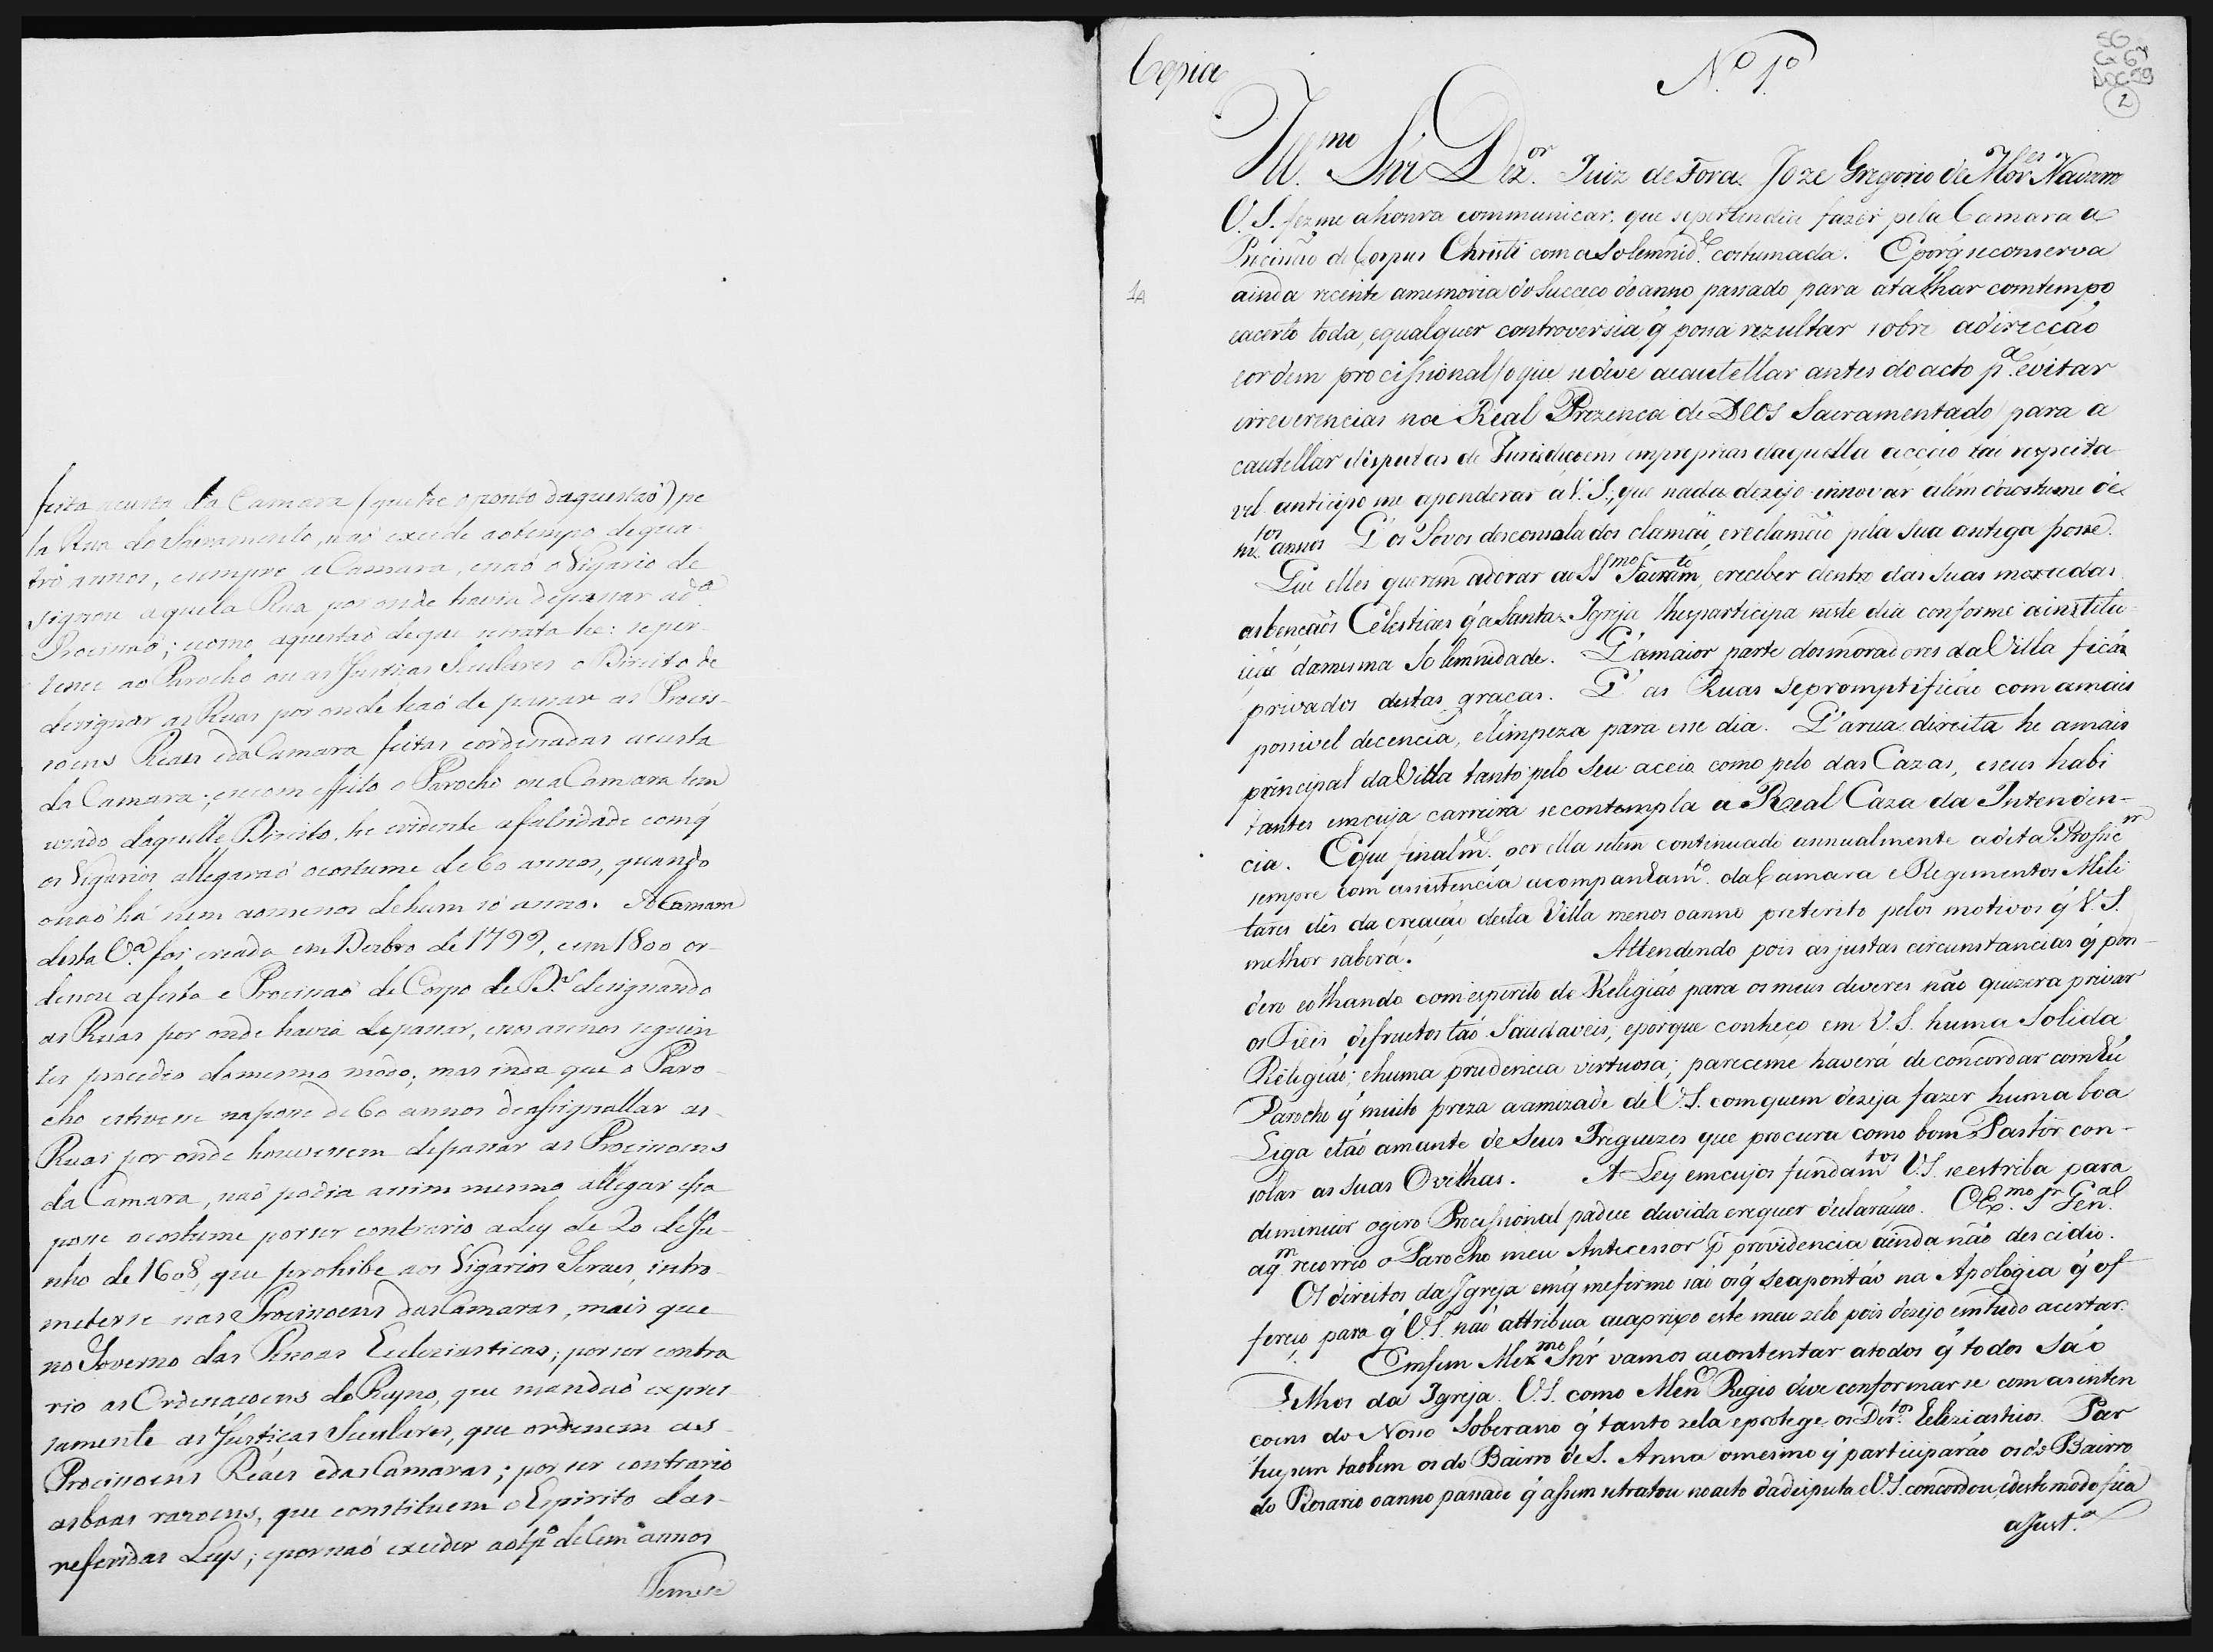 feita acusta da Camara (que he o ponto daquestaõ) pe
la Rua do Sacramento, naõ excede aotempo de qua
tro annos, cumpre a Camara, enaõ o Vigario de
signou aquela Rua por onde havia depassar ad.ª
Procissaõ; ecomo aquestaõ deque setrata he: seper-
tence ao Parocho ou as Justiças Seculares o Direito de
designar as Ruas por onde haõ de passar as Procis-
soens Reaes eda Camara feitas eordenadas acusta
da Camara; ecom effeito o Parocho ou a Camara tem
uzado daquelle Direito, he evidente afalsidade comq̃
os Vigarios allegaraõ ocostume de 60 annos, quando
onaõ há nem aomenos dehum só anno. A Camara
desta V.ª foi creada em Dezbro de 1799, eem 1800 or-
denou afesta e Procissaõ de Corpo de D.s designando
as Ruas por onde havia depassar, enos annos seguin
tes procedeo domesmo módo; mas inda que o Paro-
cho estivesse naposse de 60 annos deassignallar as
Ruas por onde houvessem depassar as Procissoens
da Camara, naõ podia assim mesmo allegar essa
posse ecostume porser contrario aLey de 20 deJu-
nho de 1608, que prohibe aos Vigarios Geraes, intro-
meterse nas Procissoens das Camaras, mais que
no Governo das Pessoas Ecleziasticas; porser contra
rio as Ordenaçoens do Reyno, que mandaõ expres
samente as Justiças Seculares, que ordenem as
Procissoens Reáes edas Camaras; por ser contrario
asboas razoens, que constituem o Espirito das
referidas Leys; epornaõ exceder aotp.º deCem annos
Temese
Copia
N.º 1.º
SG
Cx 67
DOC 99
2
Ill.mo Snr Dez.or Juiz de Fora Joze Gregorio de Mor.es Navarro
V. S. fezme ahonra communicar, que sepertendia fazer pela Camara a
Procissão de Corpus Christi com a Solemnid.e costumada. Eporq̃ seconserva
1A
ainda recente amemoria do Succeço do anno passado para atalhar comtempo
eacerto toda, equalquer controversia q̃ possa rezultar sobre adirecção
eordem procissional (oque sedeve acautellar antes do acto p.ª evitar
irreverencias na Real Prezença de Deos Sacramentado) para a
cautellar disputas de Jurisdicoens improprias daquella acção táo respeita
vel anticipo me aponderar á V. S., que nada dezejo innovar além docostume de
m.tos annos Q' os Povos desconsolados clamão, ereclamão pela sua antiga posse.
Que elles querem adorar ao SS.mo Sacram.to, ereceber dentro das suas moradas
asbençaõs Celestiaes q̃ a Santa Igreja lhesparticipa neste dia conforme ainstitu-
içáo damesma Solemnidade. Q' amaior parte dosmoradores da Villa ficão
privados destas graças. Q' as Ruas sepromptificáo com amais
possivel decencia, elimpeza para esse dia. Q' arua direita he amais
principal da Villa tanto pelo Seu aceio como pelo das Cazas, eseus habi
tantes emcuja carreira secontempla a Real Caza da Intenden-
cia. Eque finalm.e por ella setem continuado annualmente adita Prossic.m
sempre com assistencia acompanham.to da Camara e Regimentos Mili
tares dês da creaçáo desta Villa menos oanno preterito pelos motivos q̃ V. S.
melhor saberá. Attendendo pois ásjustas circunstancias q̃ pon-
dero eolhando comespirito de Religiáo para os meus deveres não quizera privar
os Fieis defructos táo Saudaveis; eporque conheço em V. S. huma Solida
Religiáo; ehuma prudencia virtuosa; pareceme haverá de concordar comhũ
Parocho q̃ muito preza aamizade de V. S. comquem dezeja fazer huma boa
Liga etáo amante de Seus Freguezes que procura como bom Pastor con-
solar as suas Ovelhas. A Ley emcujos fundam.tos V. S. seestriba para
deminuir ogiro Processional padece duvida erequer declaração. OEx.mo Sr Gen.al
aq.m recorreo o Parocho meu Antecessor p.r providencia ainda não descidio.
Os direitos da Igreja emq̃ mefirmo sáo osq̃ seapontáo na Apologia q̃ of
fereço para q̃ V. S. náo attribua acaprixo este meu zelo pois dezejo emtudo acertar.
Emfim Meu Snr vamos acontentar atodos q̃ todos Sáo
Filhos da Igreja. V. S. como Men.o Regio deve conformarse com asinten
coens do Nosso Soberano q̃ tanto zela eprotege os Dir.tos Ecleziasticos. Par
tecipem taobem os do Bairro de S. Anna omesmo q̃ participarão osdo Bairro
do Rosario oanno passado q̃ assim setratou noacto dadisputa e V. S. concordou edeste modo fica
aJust.ª